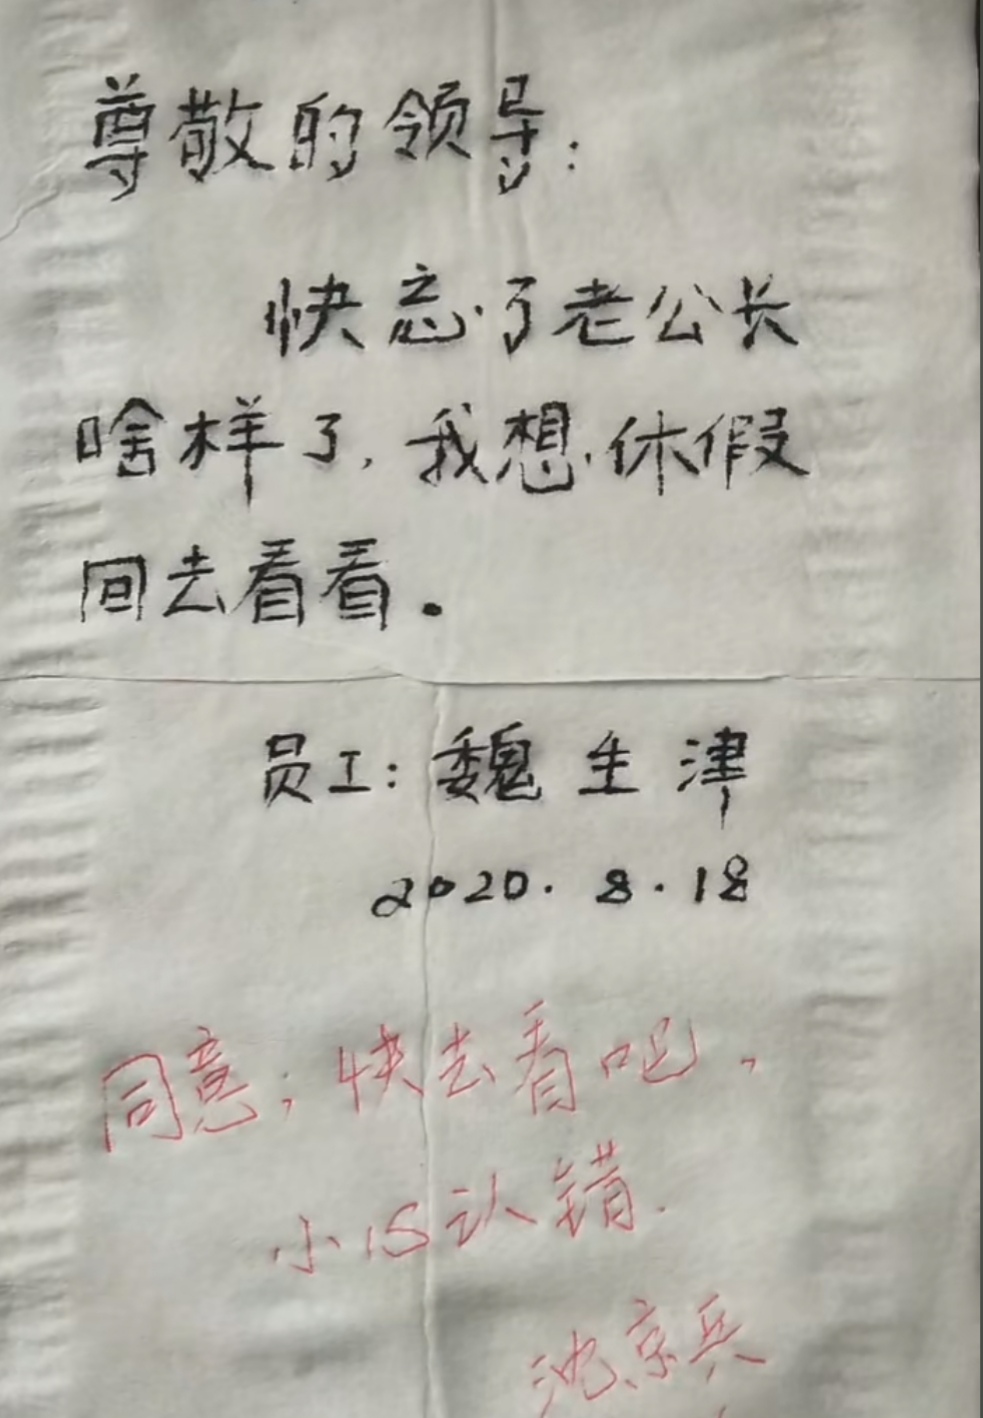 尊敬的领导:
快忘了老公长
啥样了,我想休假
回去看看.
员工:魏生津
2020.8.18
同意;快去看吧,
小心认错.
沈京兵